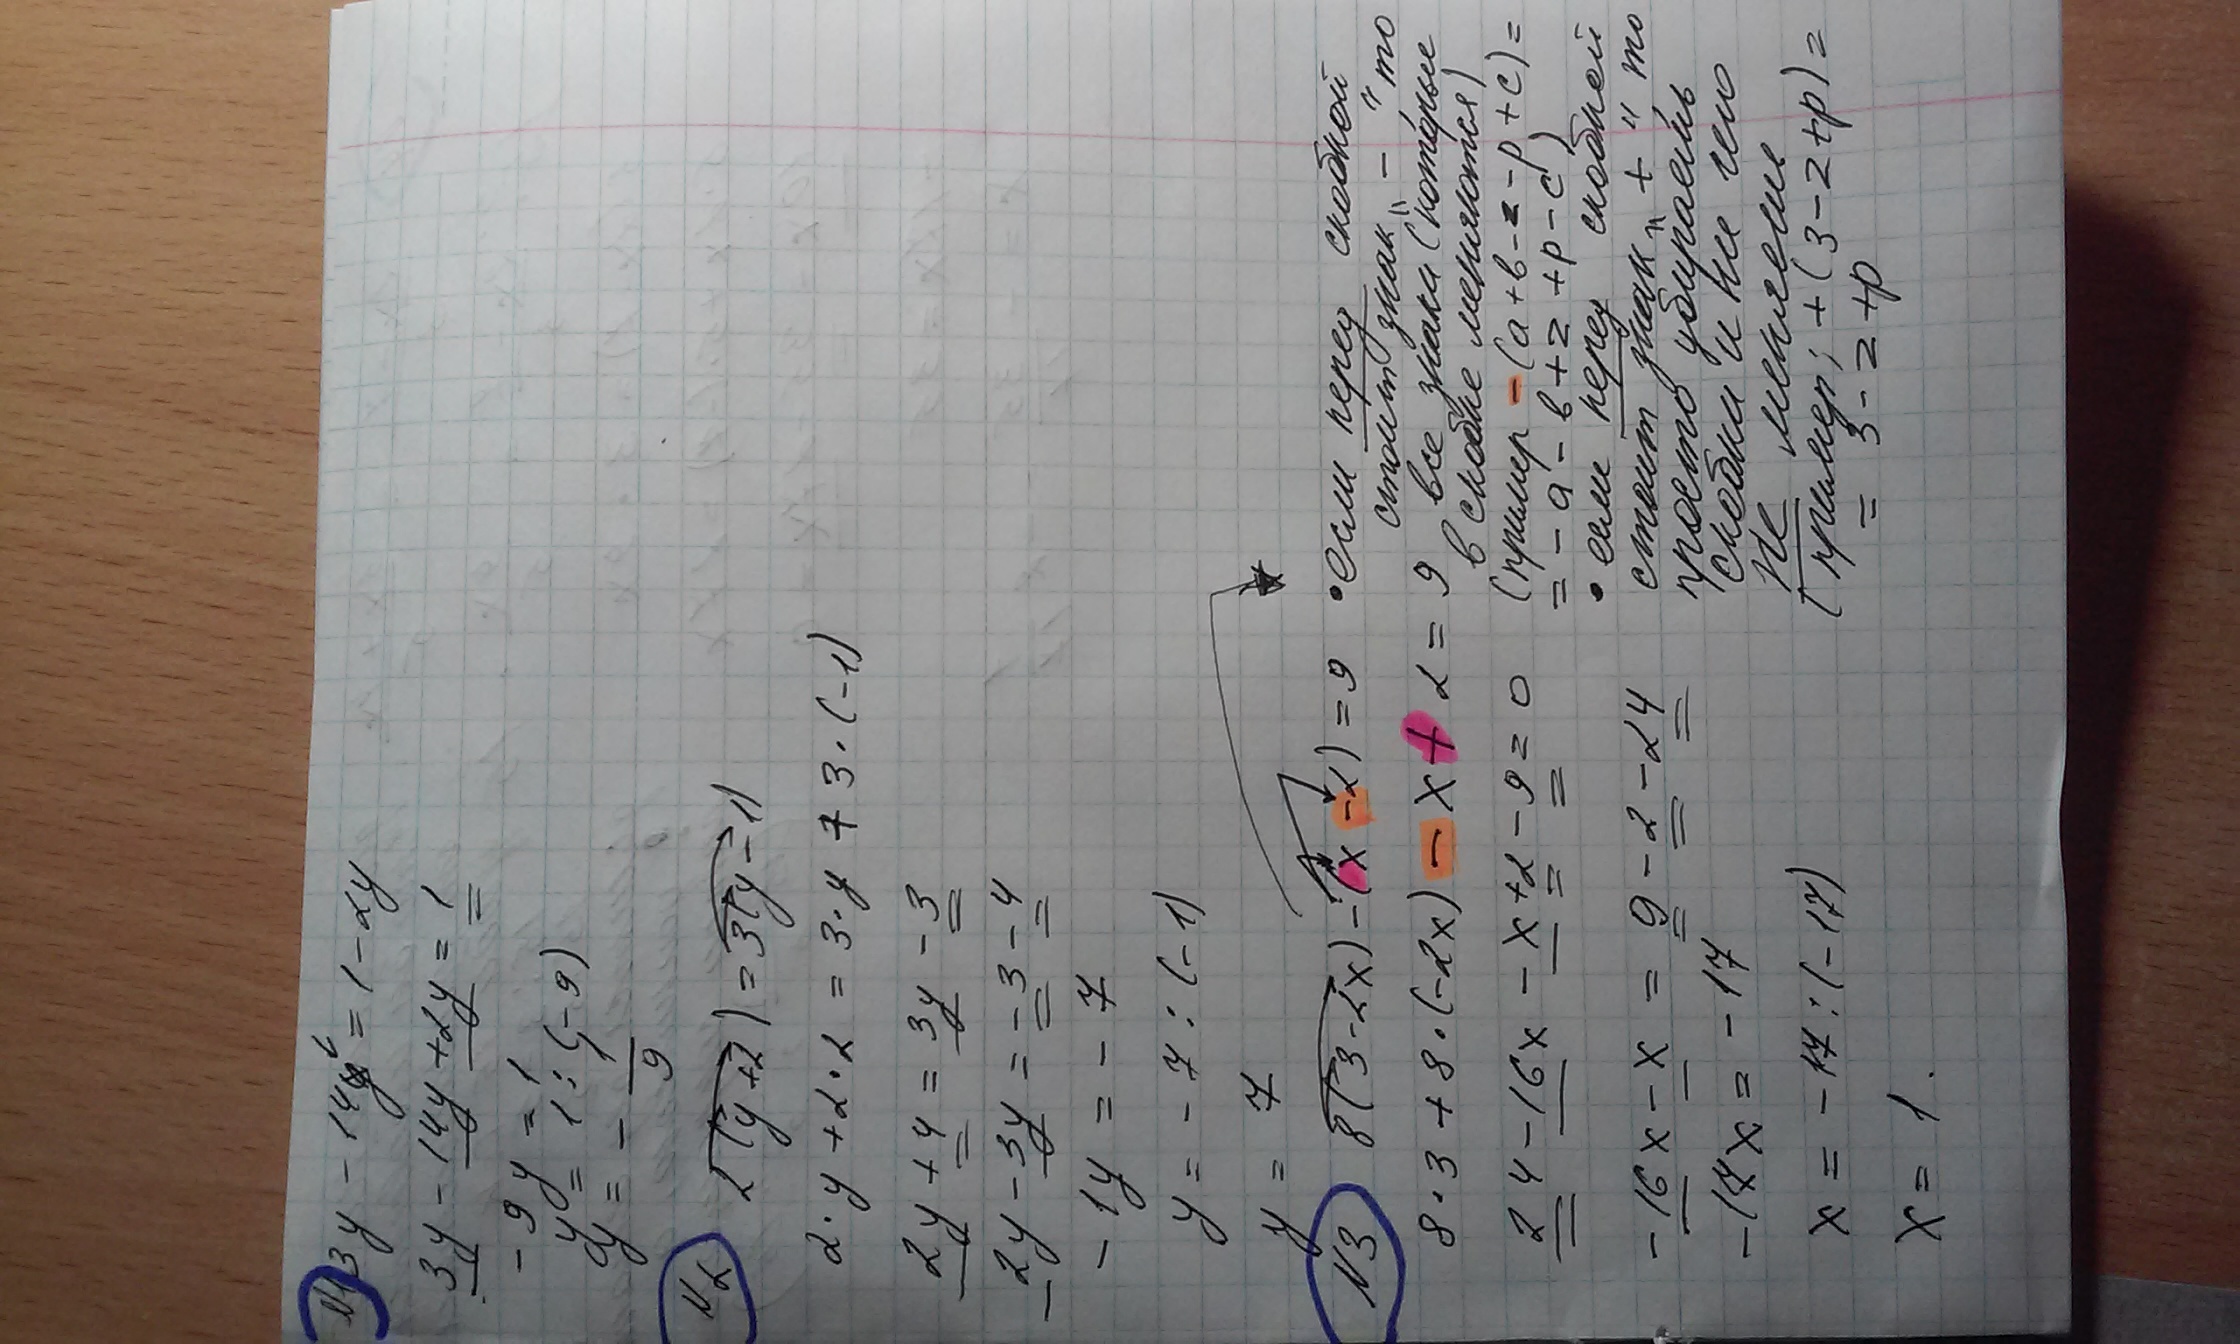 N1 3y - 14y = 1 - 2y
3y - 14y + 2y = 1
- 9y = 1
y = 1 : (-9)
y = - 1/9
N2 2(y+2) = 3(y-1)
2·y + 2·2 = 3·y + 3·(-1)
2y + 4 = 3y - 3
2y - 3y = -3 - 4
- 1y = - 7
y = - 7 : (-1)
y = 7
N3 8(3-2x) - (x-2) = 9
8·3 + 8·(-2x) - x + 2 = 9
24 - 16x - x + 2 - 9 = 0
- 16x - x = 9 - 2 - 24
- 17x = - 17
x = - 17 : (-17)
x = 1.
• если перед скобкой
стоит знак "-" то
все знаки (которые
в скобке меняются)
(пример - (a + b - z - p + c) =
= - a - b + z + p - c)
• если перед скобкой
стоит знак "+" то
просто убираем
скобки и ни чего
не меняем
(пример; + (3 - 2 + p) =
= 3 - 2 + p